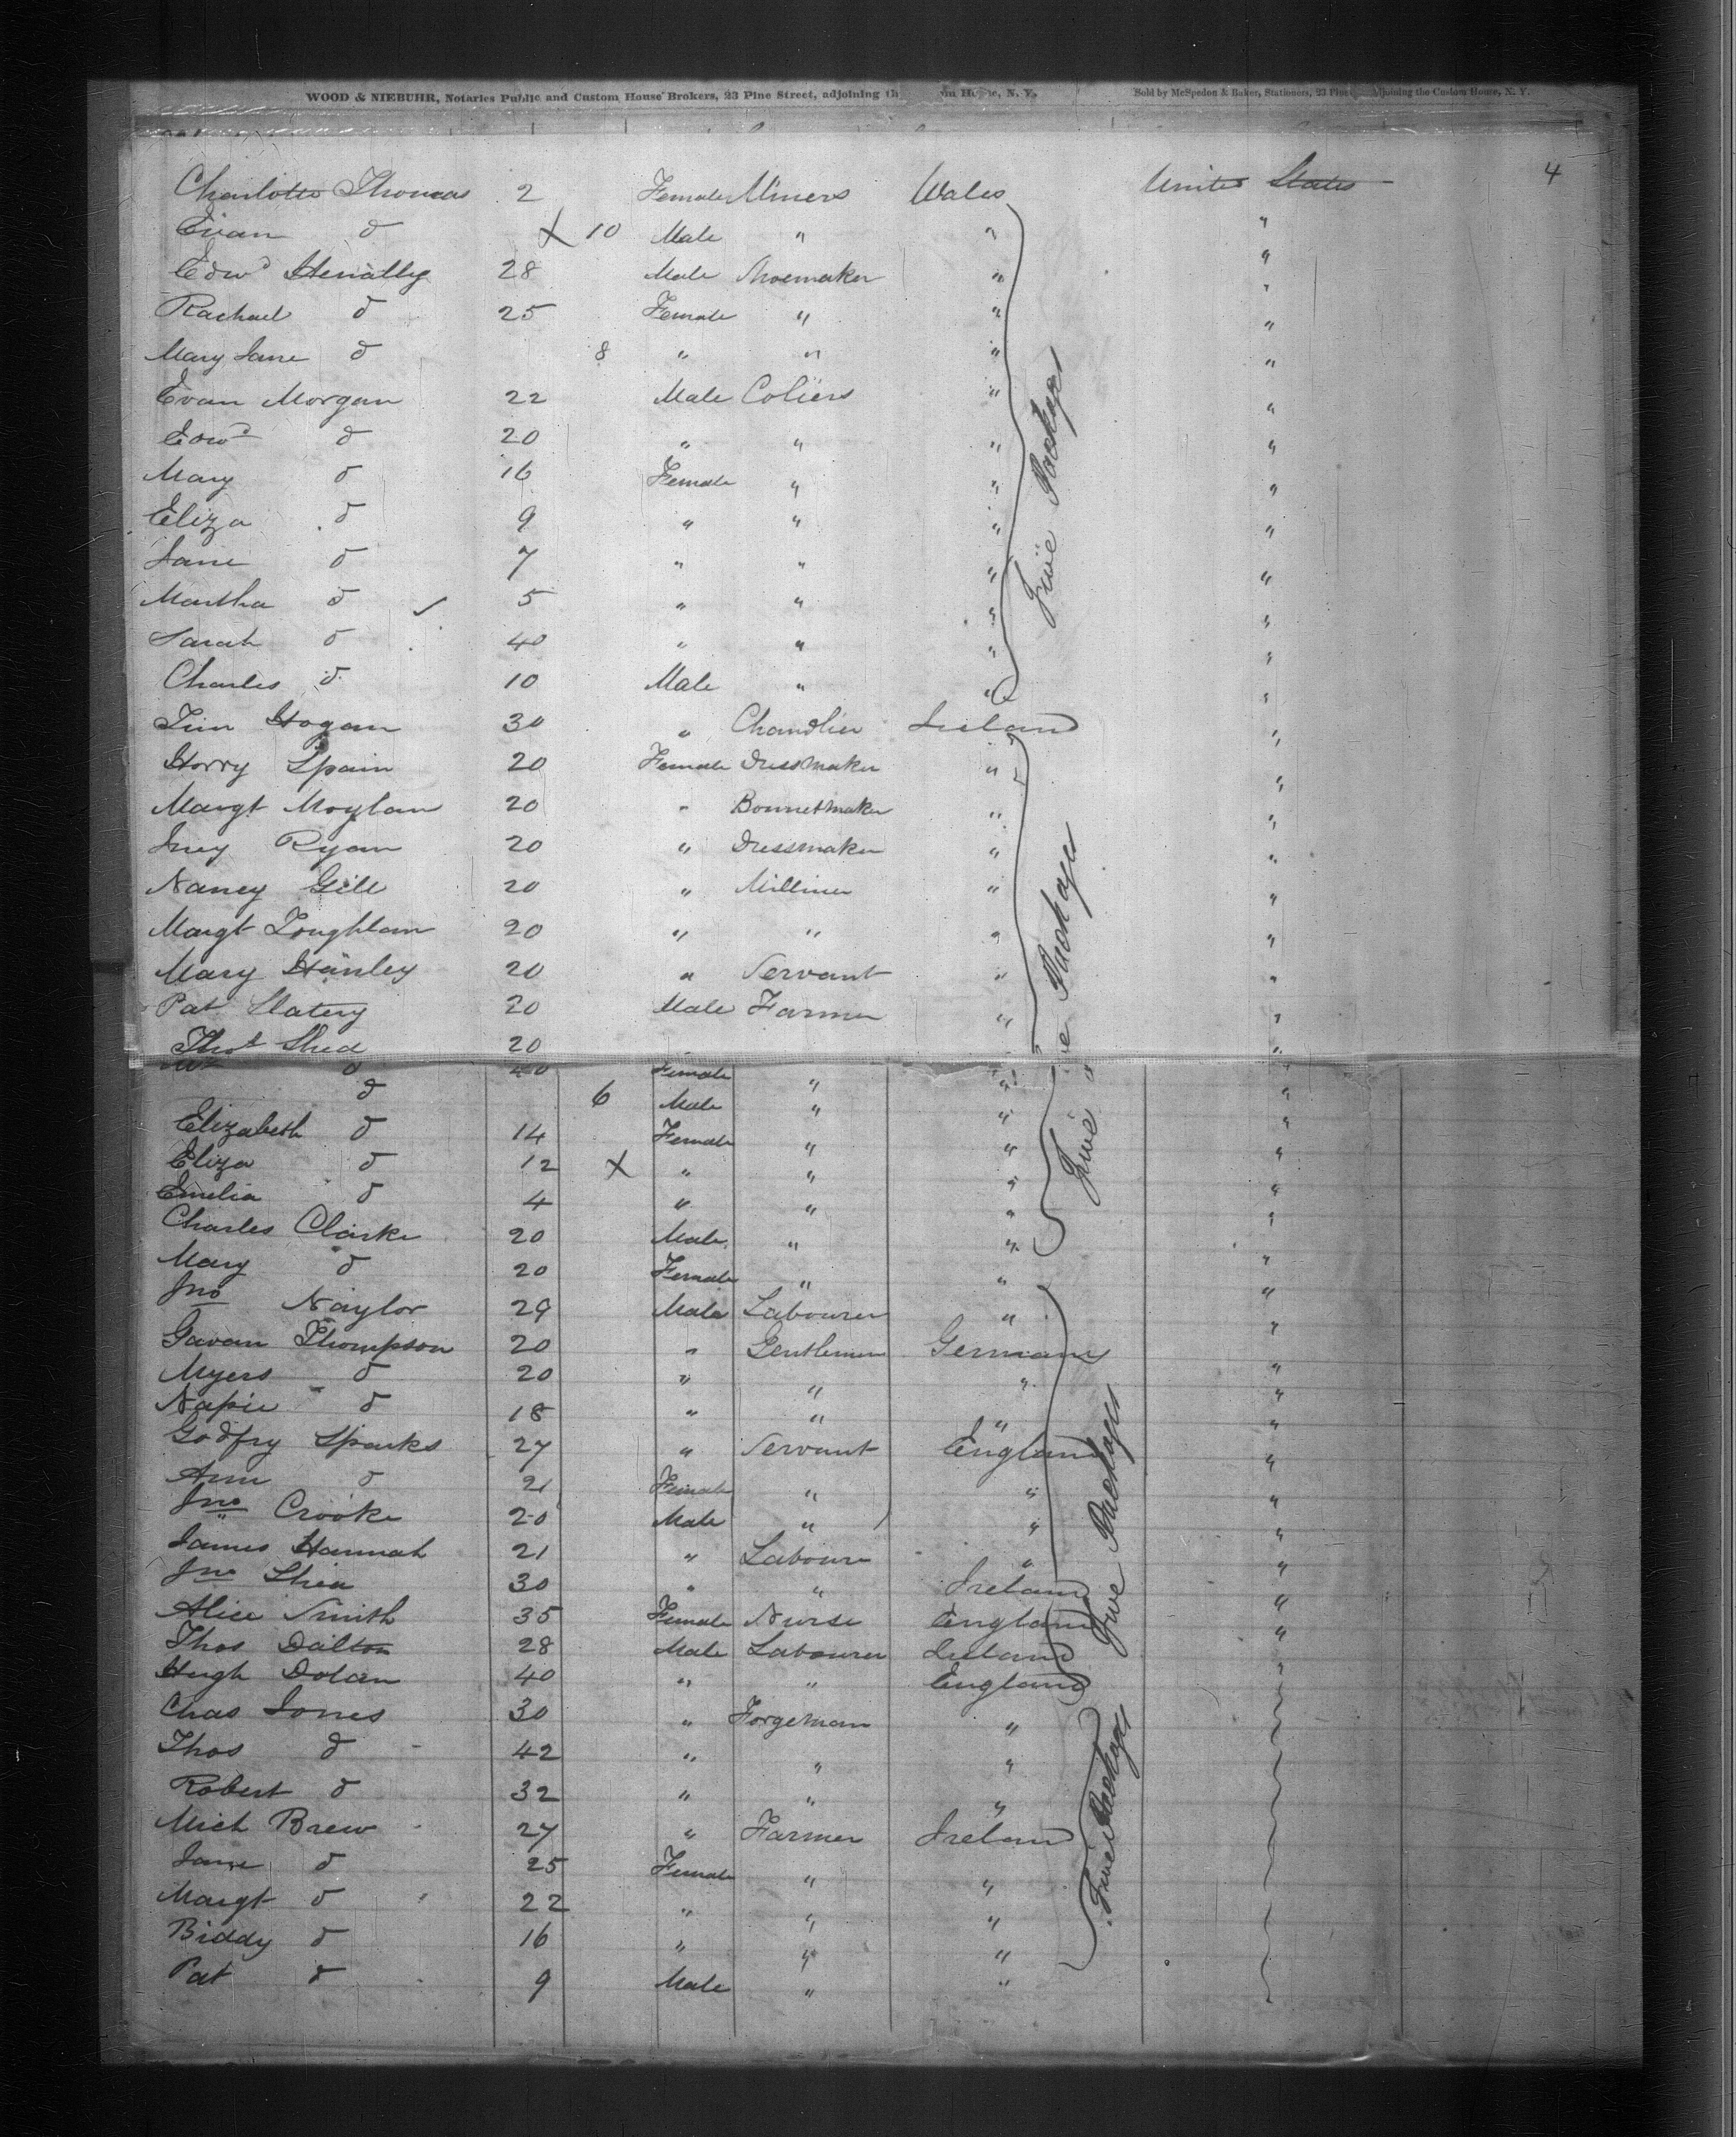 WOOD & NIEBUHR, Notaries Public and Custom House Brokers, 23 Pine Street, adjoining th om House, N. Y. Sold by McSpedon & Baker, Stationers, 23 Pine adjoining the Custom House, N. Y.
4
Charlotte Thomas 2 Female Miners Wales United States
Evan d X 10 Male " " "
Edwd 28 Male Shoemaker " "
Rachael d 25 Female " " "
Mary Jane d 8 " " " "
Evan Morgan 22 Male Coliers " "
Edwd d 20 " " " "
Mary d 16 Female " " "
Eliza d 9 " " " "
Jane d 7 " " " "
Martha d ✓ 5 " " " "
Sarah d 40 " " " "
Charles d 10 Male " " "
Five Packages
Tim Hogan 30 " Chandlier Ireland "
Horry Spain 20 Female Dressmaker " "
Margt Moylan 20 " Bonnetmaker " "
Ryan 20 " Dressmaker " "
Nancy Gill 20 " Milliner " "
Margt Loughlam 20 " " " "
Mary Hanley 20 " Servant " "
Pat Slatery 20 Male Farmer " "
Thos Shed 20 "
d 40 Female " " "
d 6 Male " " "
Elizabeth d 14 Female " " "
Eliza d 12 X " " " "
Emelia d 4 " " " "
Charles Clarke 20 Male " " "
Five Packages
Mary d 20 Female " " "
Jno Naylor 29 Male Labourer " "
Gavan Thompson 20 " Gentlemen Germany "
Myers d 20 " " " "
Napie d 18 " " " "
Godfry Sparks 27 " Servant England "
Ann d 21 Female " " "
Jno Crooke 20 Male " " "
James Hannah 21 " Labour " "
Jno Shea 30 " " Ireland "
Alice Smith 35 Female Nurse England "
Thos Dalton 28 Male Labourer Ireland "
Hugh Dolan 40 " " England "
Five Packages
Chas Jones 30 " Forgeman "
Thos d 42 " " "
Robert d 32 " " "
Mich Brew 27 " Farmer Ireland
Jane d 25 Female " "
Margt d 22 " " "
Biddy d 16 " " "
Pat d 9 Male " "
Five Packages